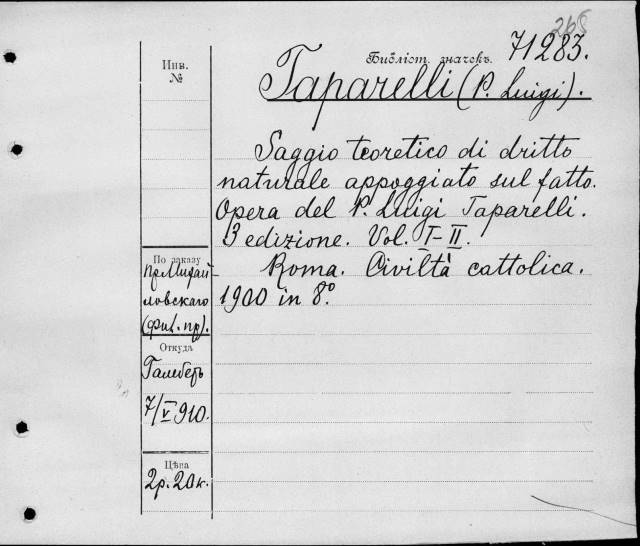 268
71283.
Инв.
№
Библіот. значекъ.
Taparelli (P. Luigi).
Saggio teoretico di dritto
naturale appoggiato sul fatto.
Opera del P. Luigi Taparelli.
3 edizione. Vol. I-II.
Roma. Civiltà cattolica.
1900 in 8º.
По заказу
пр. Михай-
ловскаго
(фил. пр).
Откуда
Галебергъ
7/V 910.
Цѣна
2р. 20к.